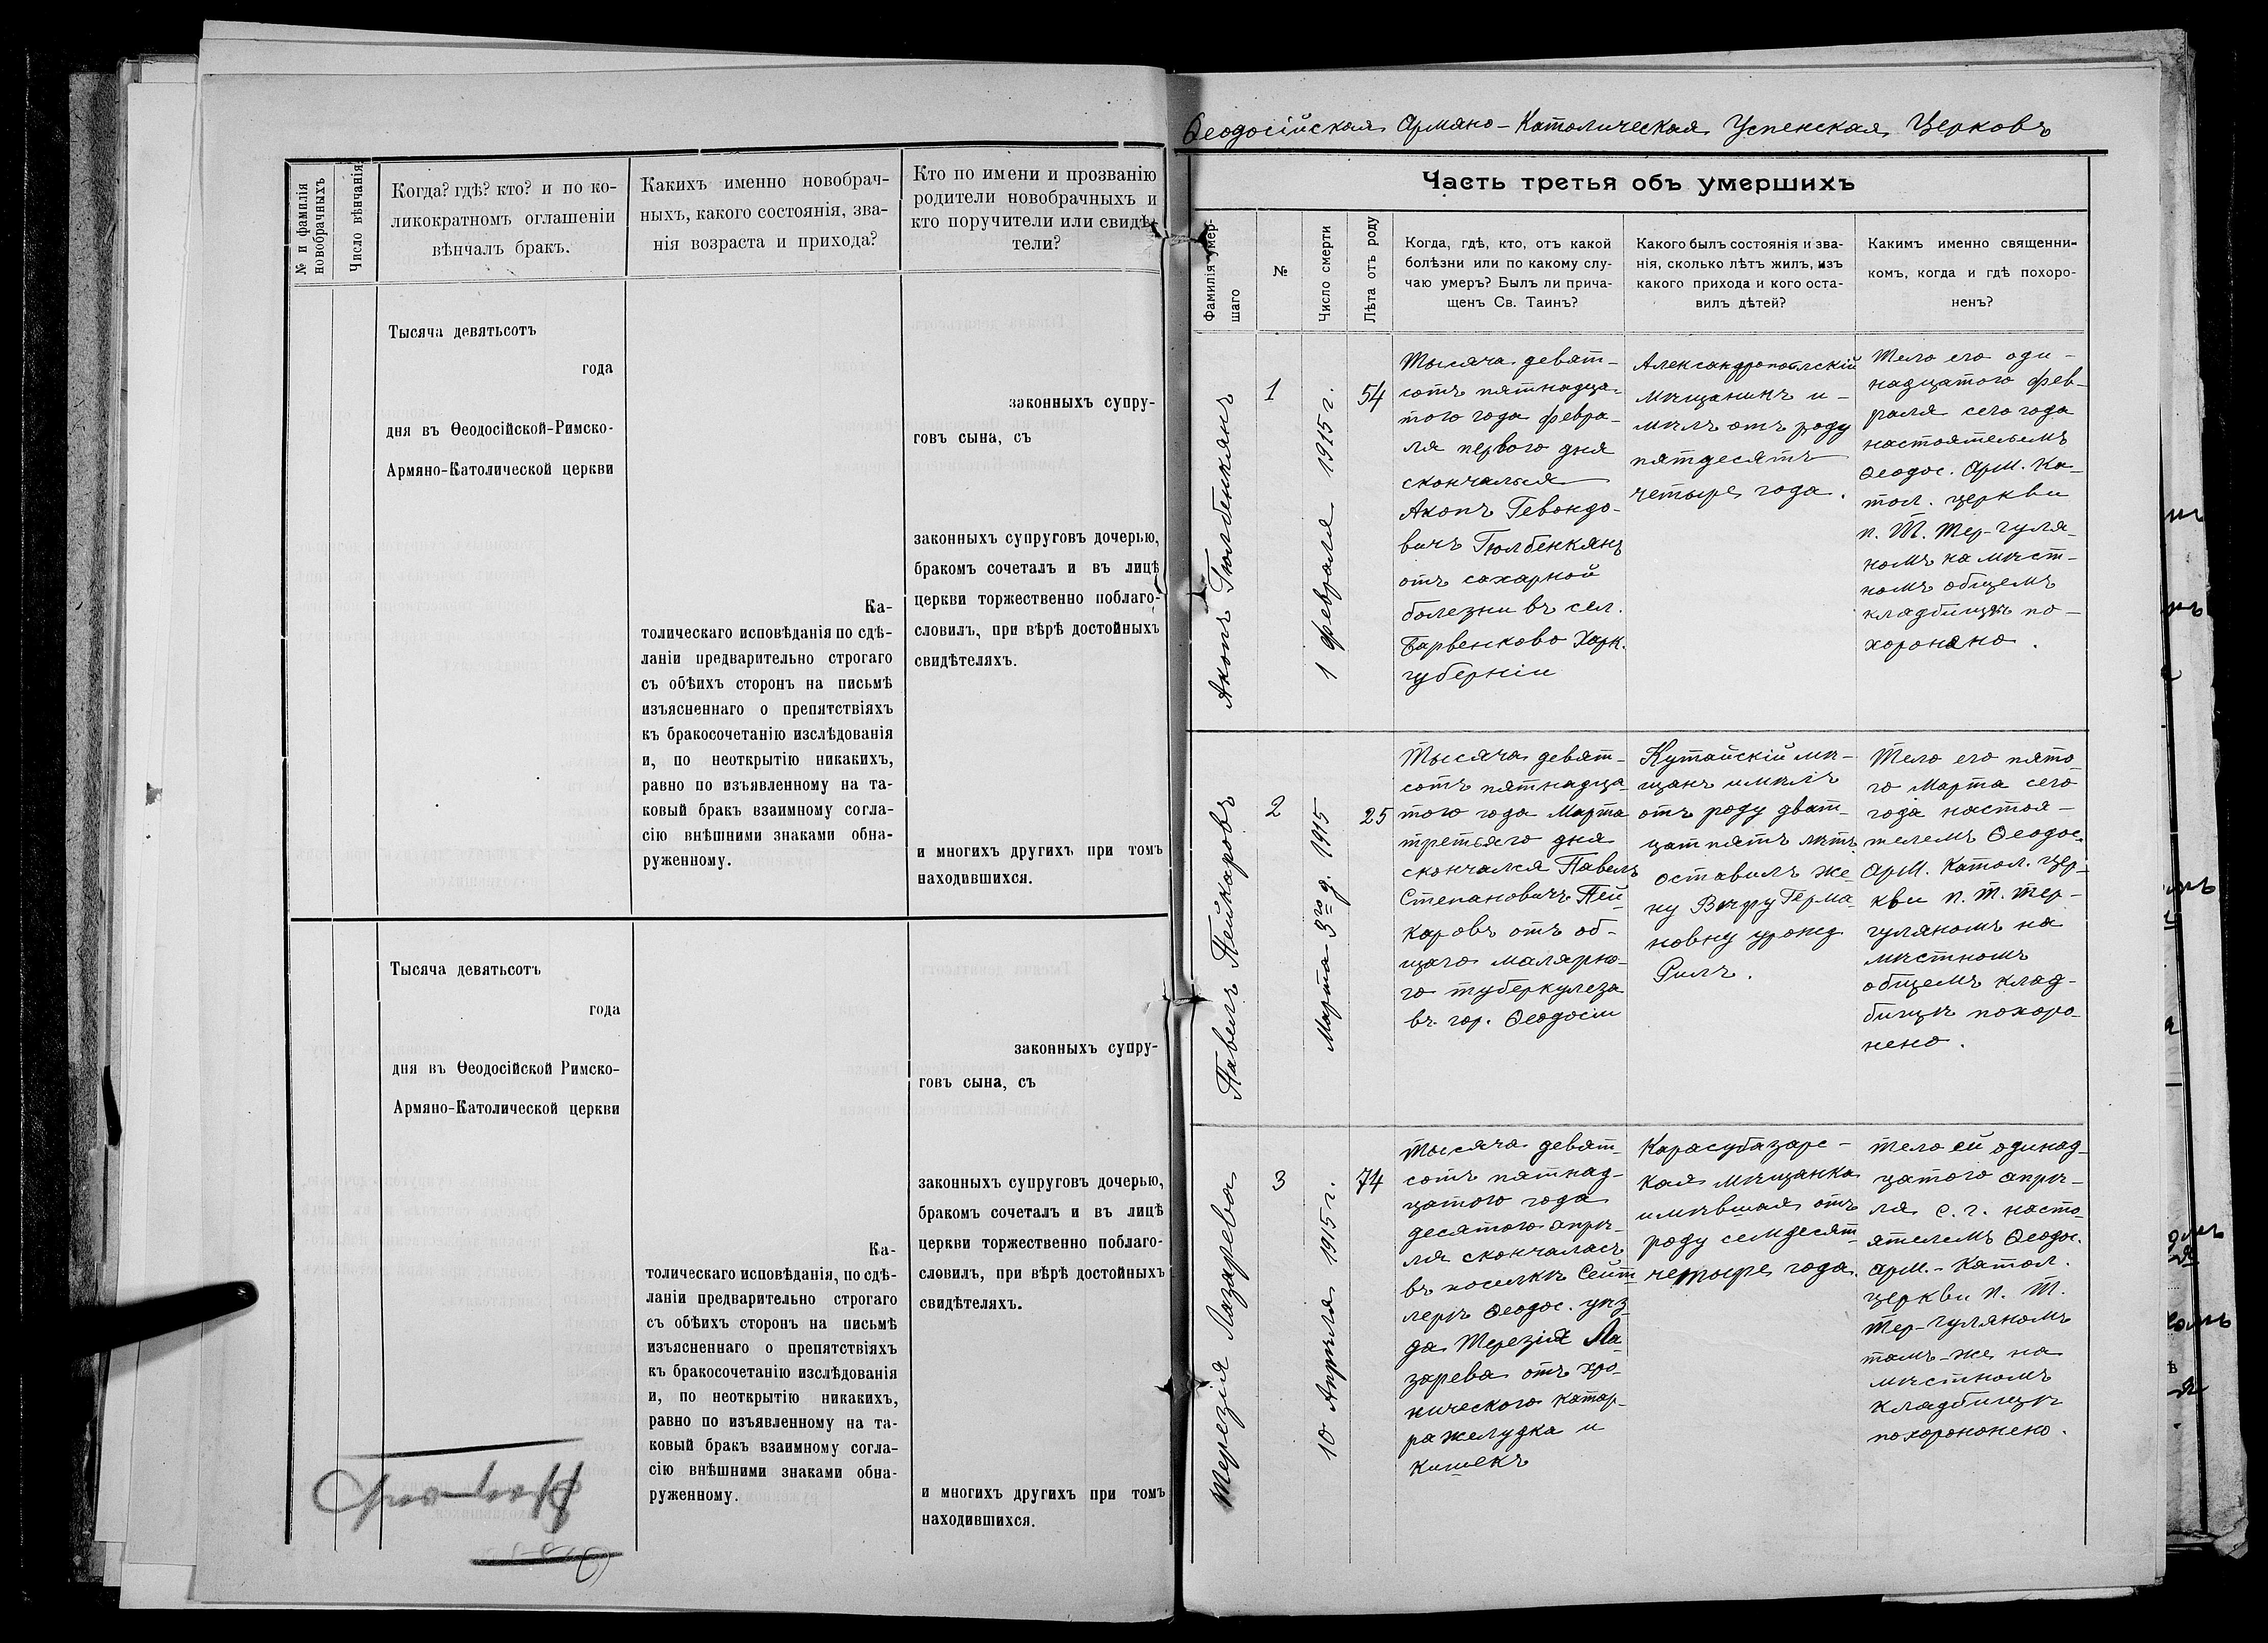 № и фамилія новобрачныхъ
Число вѣнчанія
Когда? гдѣ? кто? и по ко-
ликократномъ оглашеніи
вѣнчалъ бракъ.
Какихъ именно новобрач-
ныхъ, какого состоянія, зва-
нія возраста и прихода?
Кто по имени и прозванію
родители новобрачныхъ и
кто поручители или свидѣ-
тели?
Тысяча девятьсотъ
года
дня въ Ѳеодосійской-Римско-
Армяно-Католической церкви
Ка-
толическаго исповѣданія по сдѣ-
ланіи предварительно строгаго
съ обѣихъ сторонъ на письмѣ
изъясненнаго о препятствіяхъ
къ бракосочетанію изслѣдованія
и, по неоткрытію никакихъ,
равно по изъявленному на та-
ковый бракъ взаимному согла-
сію внѣшними знаками обна-
руженному.
законныхъ супру-
говъ сына, съ
законныхъ супруговъ дочерью,
бракомъ сочеталъ и въ лицѣ
церкви торжественно поблаго-
словилъ, при вѣрѣ достойныхъ
свидѣтеляхъ.
и многихъ другихъ при томъ
находившихся.
Тысяча девятьсотъ
года
дня въ Ѳеодосійской Римско-
Армяно-Католической церкви
Ка-
толическаго исповѣданія, по сдѣ-
ланіи предварительно строгаго
съ обѣихъ сторонъ на письмѣ
изъясненнаго о препятствіяхъ
къ бракосочетанію изслѣдованія
и, по неоткрытію никакихъ,
равно по изъявленному на та-
ковый бракъ взаимному согла-
сію внѣшними знаками обна-
руженному.
законныхъ супру-
говъ сына, съ
законныхъ супруговъ дочерью,
бракомъ сочеталъ и въ лицѣ
церкви торжественно поблаго-
словилъ, при вѣрѣ достойныхъ
свидѣтеляхъ.
и многихъ другихъ при томъ
находившихся.
Ѳеодосійская Армяно-Католическая Успенская Церковь
Часть третья объ умершихъ
Фамилія умер-
шаго
№
Число смерти
Лѣта отъ роду
Когда, гдѣ, кто, отъ какой
болѣзни или по какому слу-
чаю умеръ? Былъ ли прича-
щенъ Св. Таинъ?
Какого былъ состоянія и зва-
нія, сколько лѣтъ жилъ, изъ
какого прихода и кого оста-
вилъ дѣтей?
Какимъ именно священни-
комъ, когда и гдѣ похоро-
ненъ?
Акопъ Гюлбенкянъ
1
1 февраля 1915 г.
54
Тысяча девят-
сотъ пятнадца-
того года февра-
ля первого дня
скончался
Акопъ Гевондо-
вичъ Гюлбенкянъ
отъ сахарной
болезни въ сел.
Барвенково Харк.
губерніи
Александропольскій
мѣщанинъ и-
мѣлъ отъ роду
пятдесятъ
четыре года.
Тело его оди-
надцатого фев-
раля сего года
настоятелемъ
Ѳеодос. Арм. Ка-
тол. церкви
п. Т. Тер-Гуля-
номъ на мѣст-
номъ общемъ
кладбищѣ по-
хоронено.
Павелъ Пейкаровъ
2
Марта 3го д. 1915
25
Тысяча девят-
сотъ пятнадца-
того года Марта
третьяго дня
скончался Павелъ
Степановичъ Пей-
каровъ отъ об-
щаго малярно-
го туберкулеза
въ гор. Ѳеодосіи
Кутайскій мѣ-
щанъ имѣлъ
отъ роду дват-
цат пять лѣтъ
оставилъ же-
ну Вѣру Герма-
новну урожд.
Рилъ.
Тело его пято-
го Марта сего
года настоя-
телемъ Ѳеодос.
Арм. Катол. цер-
кви п. Т. Тер-
гуляномъ на
мѣстномъ
общемъ клад-
бищѣ похоро-
нено.
Терезія Лазарева
3
10 Апрѣля 1915 г.
74
Тысяча девят-
сотъ пятнад-
цатого года
десятого апрѣ-
ля скончалась
въ поселкѣ Сейт-
лерѣ Ѳеодос. уѣз-
да Терезія Ла-
зарева отъ хро-
нического катар-
ра желудка и
кишекъ
Карасубазарс-
кая мѣщанка
имѣвшая отъ
роду семдесят
четыре года.
Тело ей одинад-
цатого апрѣ-
ля с. г. насто-
ятелемъ Ѳеодос.
Арм.-Катол.
церкви п. Т.
Тер-Гуляномъ
тамъ-же на
мѣстномъ
кладбищѣ
похорононено.